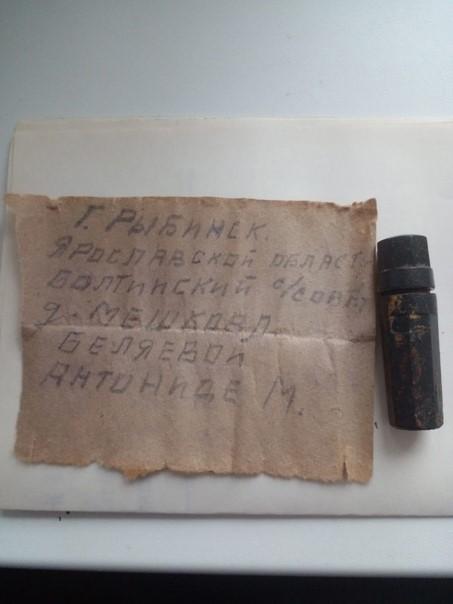 Г. РЫБИНСК.
ЯРОСЛАВСКОЙ ОБЛАСТ.
БОЛТИНСКИЙ С/СОВЕТ
д. МЕШКОВА
БЕЛЯЕВОЙ
АНТОНИДЕ М.